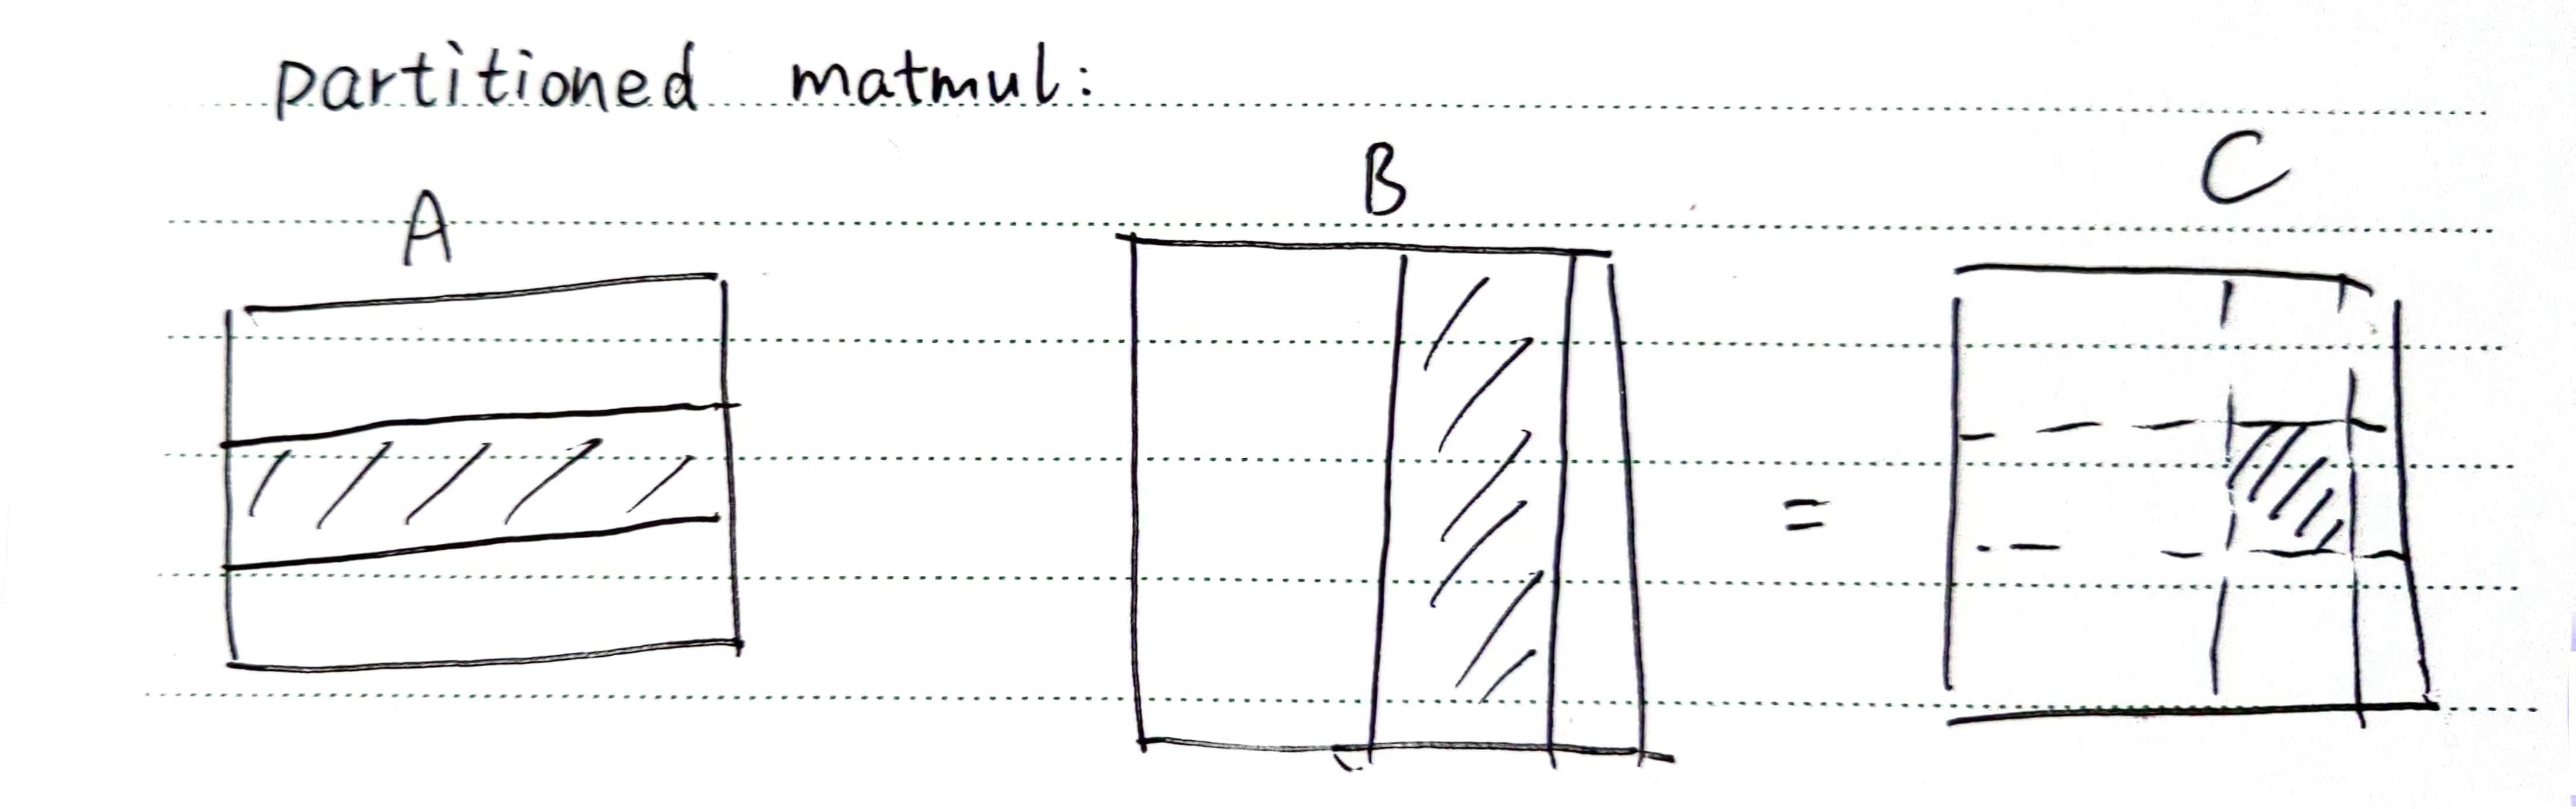 partitioned matmul:
A
B
C
=